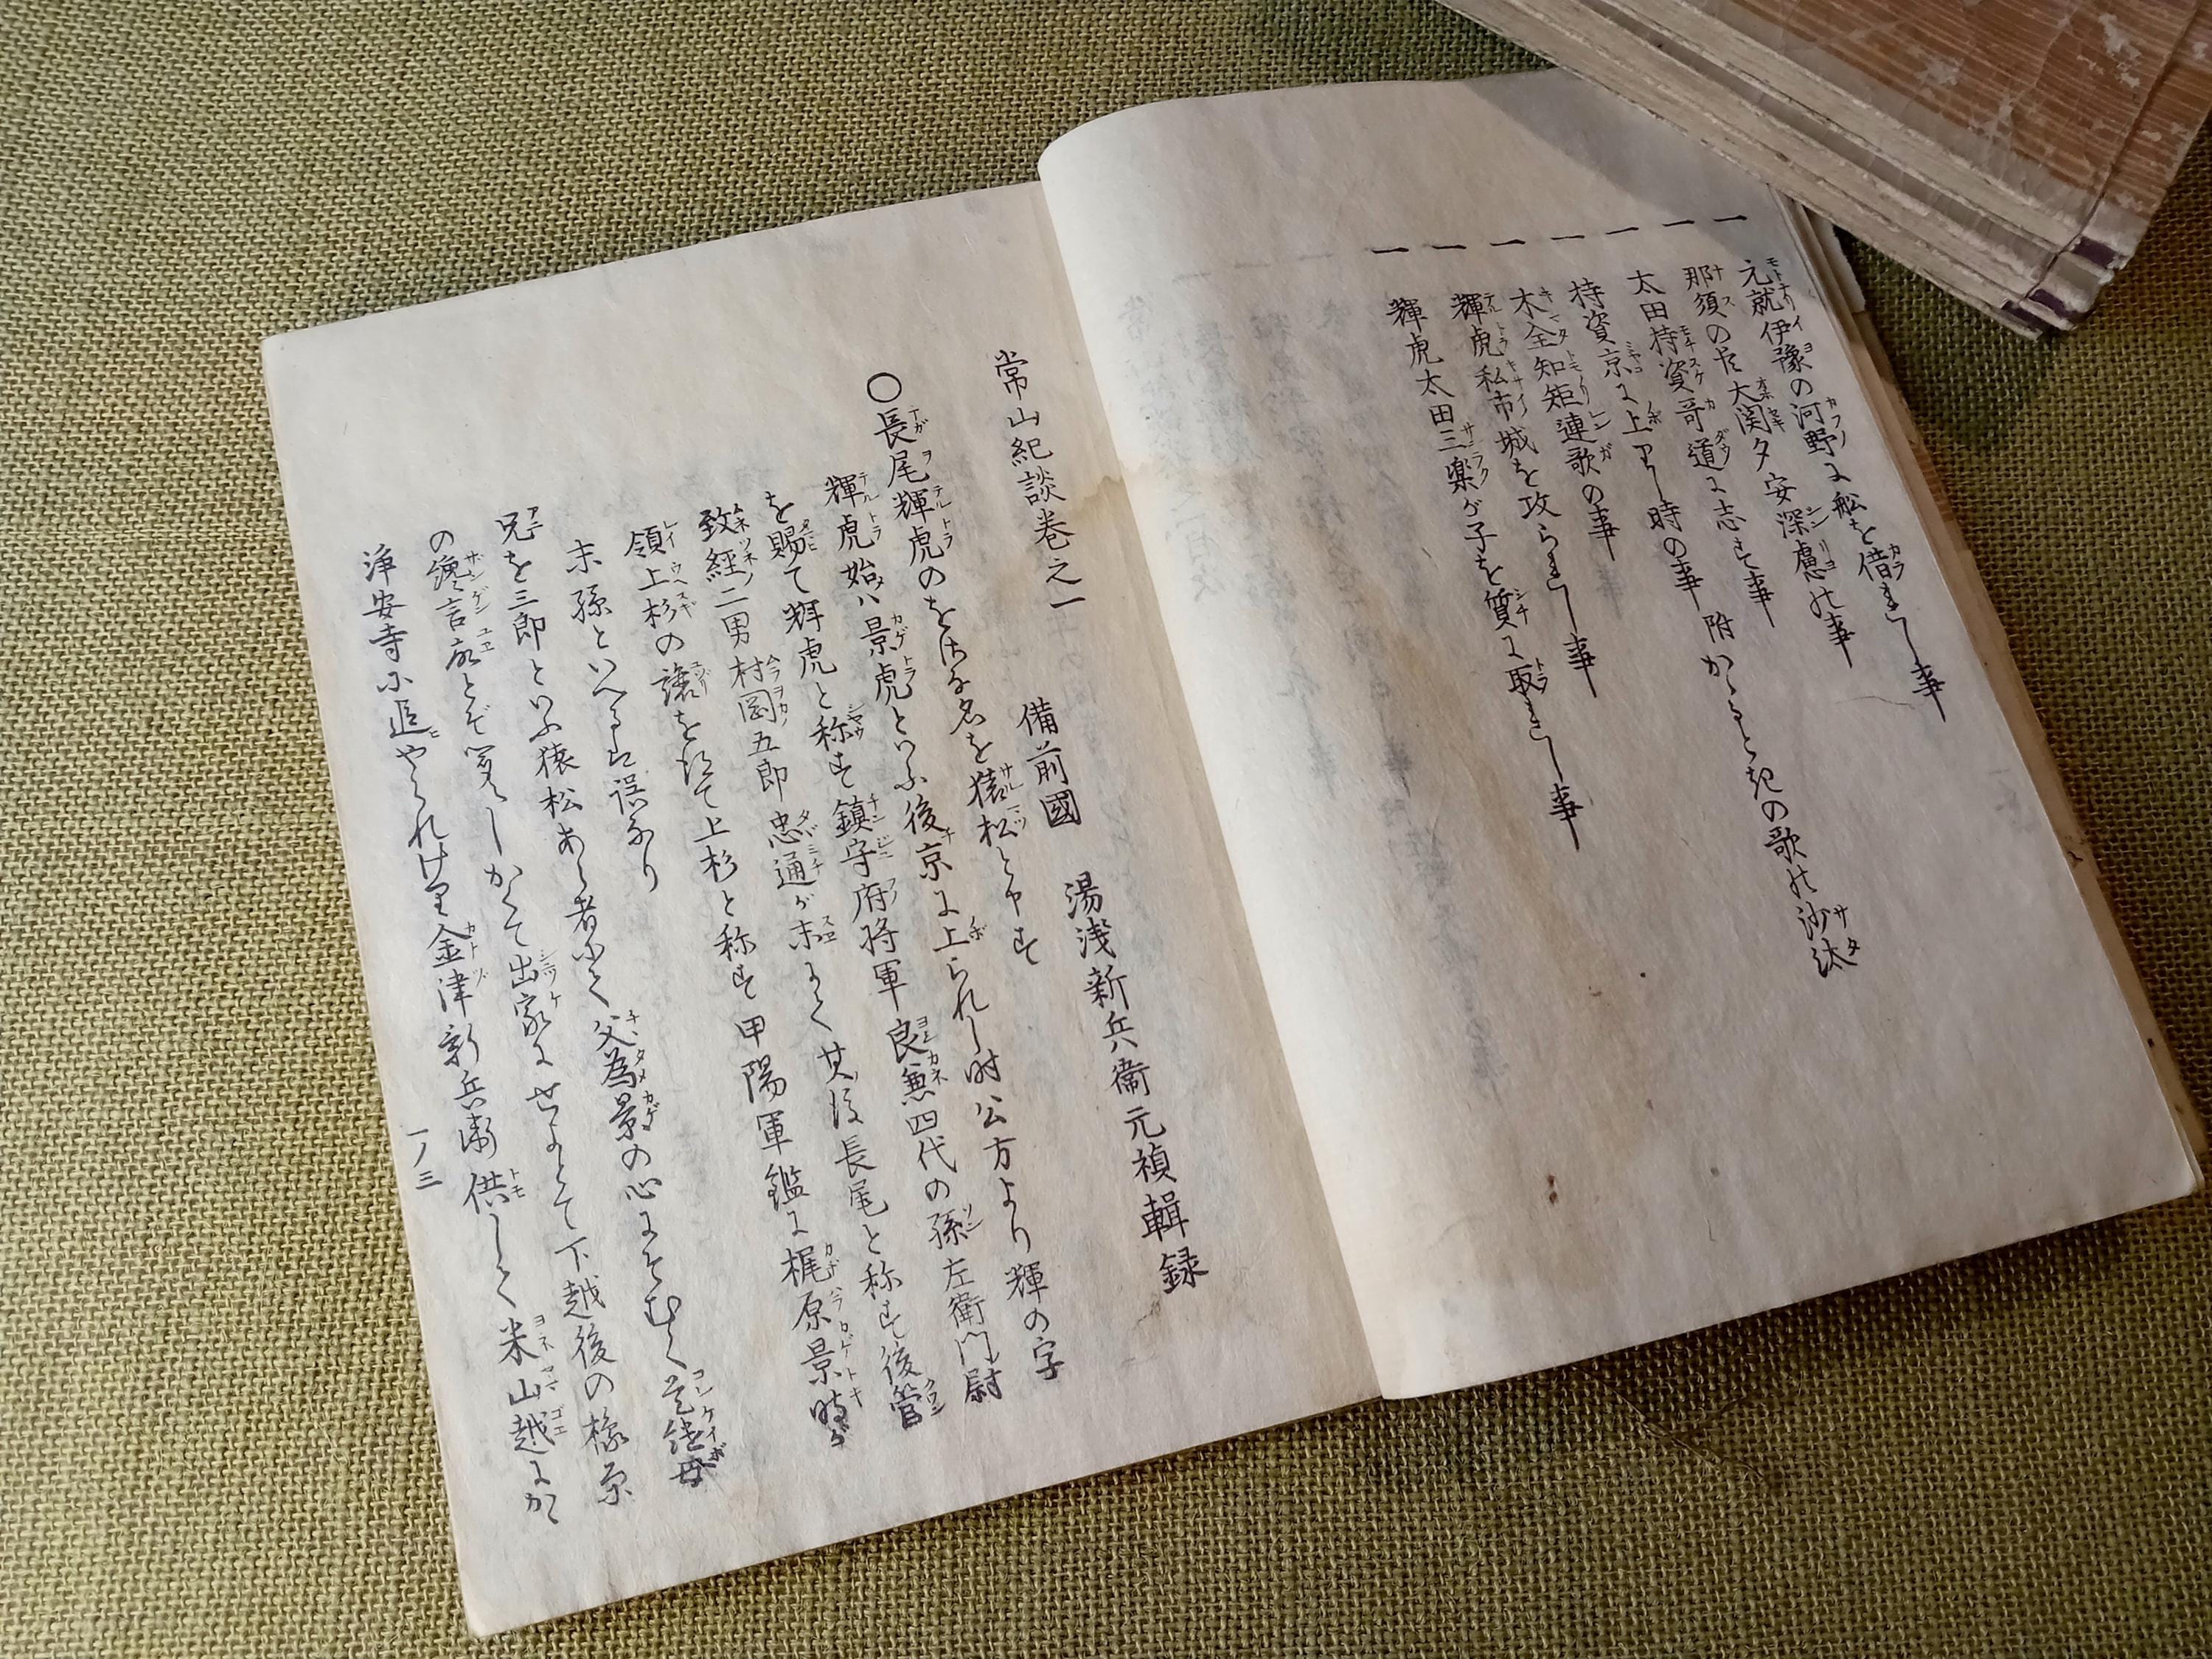 一 元就伊豫の河野に船を借られし事
一 那須の臣大関夕安深慮の事
一 太田持資哥道に志す事
一 持資京に上りし時の事 附かるとも の歌の沙汰
一 木全知矩連歌の事
一 輝虎私市城を攻られし事
一 輝虎太田三楽が子を質に取れし事
常山紀談巻之一
備前國 湯浅新兵衛元禎輯録
○長尾輝虎のをさな名を猿松と申す
輝虎始ハ景虎といふ後京に上られし時公方より輝の字
を賜て輝虎と称す鎮守府将軍良兼四代の孫左衛門尉
致経二男村岡五郎忠通が末にて其後長尾と称す後管
領上杉の譲を得て上杉と称す甲陽軍鑑に梶原景時が
末孫といへるは誤なり
兄を三郎といふ猿松あらき者にて父為景の心にそむく是継母
の讒言故とぞ聞えしかくて出家にせよとて下越後の橡原
浄安寺に追やられけり金津新兵衛供して米山越にかゝ
一ノ三